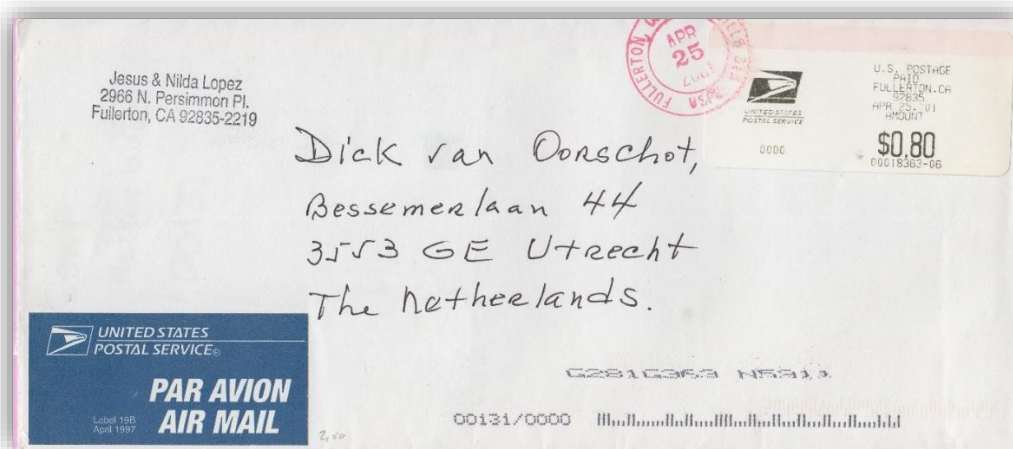 Jesus & Nilda Lopez
2966 N. Persimmon Pl.
Fullerton, CA 92835-2219
FULLERTON,
APR
25
USA
UNITED STATES
POSTAL SERVICE
0000
U.S. POSTAGE
PAID
FULLERTON.CA
92835
APR 25.'01
AMOUNT
$0.80
00018363-06
Dick van Oorschot,
Bessemerlaan 44
3553 GE Utrecht
The Netherlands.
UNITED STATES
POSTAL SERVICE®
PAR AVION
AIR MAIL
Label 19B
April 1997
2,50
00131/0000